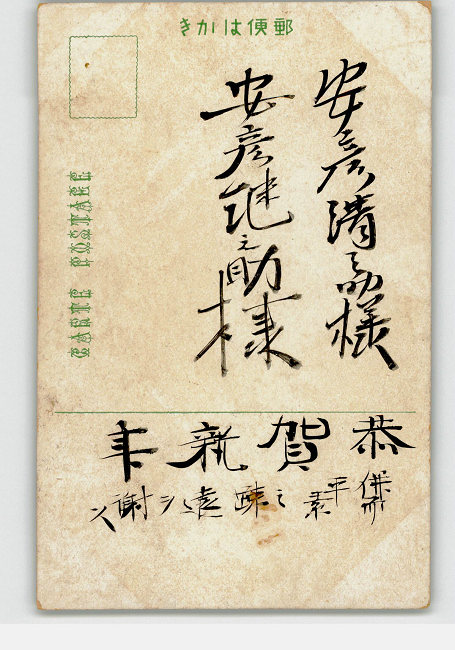 郵便はかき
安彦清様
安彦継之助様
CARTE POSTALE
恭賀新年
併而平素之疎遠ヲ謝ス